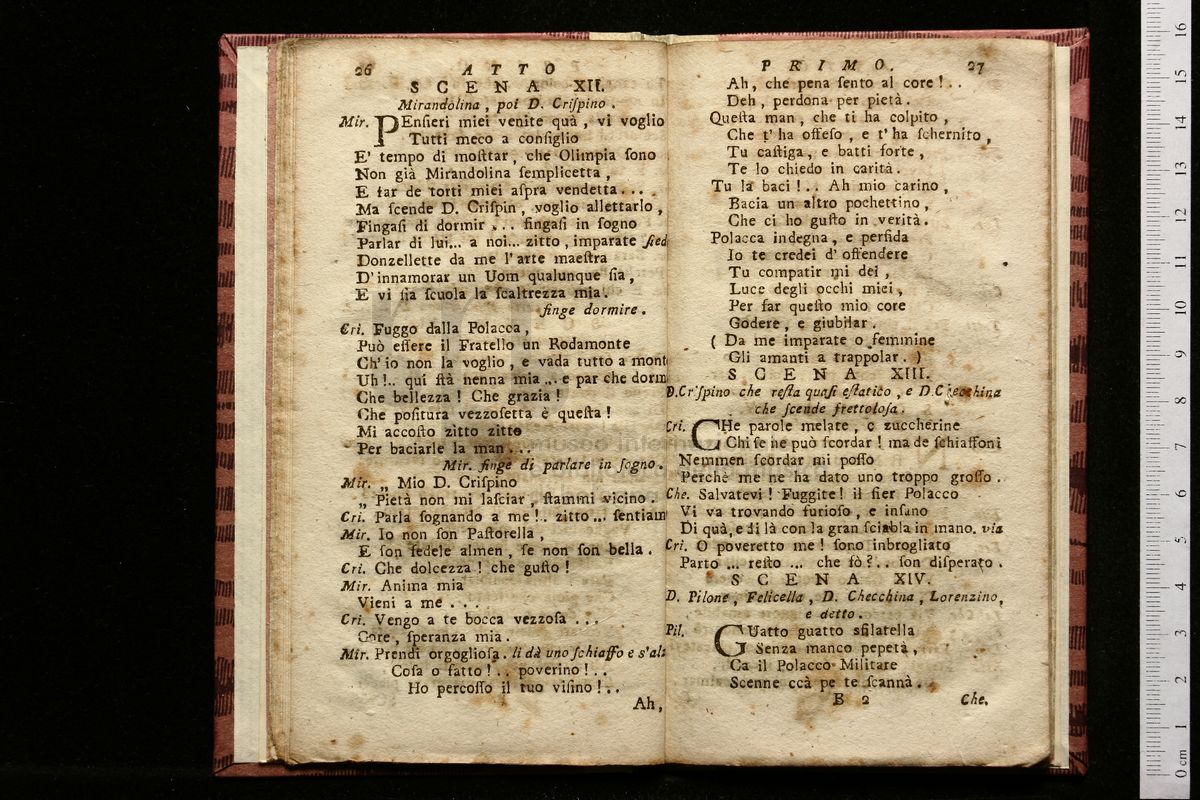 26 ATTO
SCENA XII.
Mirandolina, poi D. Criſpino.
Mir. PEnſieri miei venite quà, vi voglio
Tutti meco a conſiglio
E' tempo di moſttar, che Olimpia ſono
Non già Mirandolina ſemplicetta,
E far de torti miei aſpra vendetta....
Ma ſcende D. Criſpin, voglio allettarlo,
Fingaſi di dormir ... fingaſi in ſogno
Parlar di lui... a noi... zitto, imparate ſied
Donzellette da me l'arte maeſtra
D'innamorar un Uom qualunque ſia,
E vi ſia ſcuola la ſcaltrezza mia.
finge dormire.
Cri. Fuggo dalla Polacca,
Può eſſere il Fratello un Rodamonte
Ch'io non la voglio, e vada tutto a mont
Uh!.. quì ſtà nenna mia ... e par che dorm
Che bellezza! Che grazia!
Che poſitura vezzoſetta è queſta!
Mi accoſto zitto zitto
Per baciarle la man...
Mir. finge di parlare in ſogno.
Mir. „ Mio D. Criſpino
„ Pietà non mi laſciar, ſtammi vicino.
Cri. Parla ſognando a me!.. zitto... ſentiam
Mir. Io non ſon Paſtorella,
E ſon fedele almen, ſe non ſon bella.
Cri. Che dolcezza! che guſto!
Mir. Anima mia
Vieni a me....
Cri. Vengo a te bocca vezzoſa...
Core, ſperanza mia.
Mir. Prendi orgoglioſa. li dà uno ſchiaffo e s'alz
Coſa o fatto!.. poverino!..
Ho percoſſo il tuo viſino!..
Ah,
PRIMO. 27
Ah, che pena ſento al core!..
Deh, perdona per pietà.
Queſta man, che ti ha colpito,
Che t'ha offeſo, e t'ha ſchernito,
Tu caſtiga, e batti forte,
Te lo chiedo in carità.
Tu la baci!.. Ah mio carino,
Bacia un altro pochettino,
Che ci ho guſto in verità.
Polacca indegna, e perfida
Io te credei d'offendere
Tu compatir mi dei,
Luce degli occhi miei,
Per far queſto mio core
Godere, e giubilar.
( Da me imparate o femmine
Gli amanti a trappolar. )
SCENA XIII.
D.Criſpino che reſta quaſi eſtatico, e D.Checchina
che ſcende frettoloſa.
Cri. CHe parole melate, e zuccherine
Chi ſe ne può ſcordar! ma de ſchiaffoni
Nemmen ſcordar mi poſſo
Perchè me ne ha dato uno troppo groſſo.
Che. Salvatevi! Fuggite! il fier Polacco
Vi va trovando furioſo, e inſano
Di quà, e di là con la gran ſciabla in mano. via
Cri. O poveretto me! ſono inbrogliato
Parto ... reſto ... che fò?.. ſon diſperato.
SCENA XIV.
D. Pilone, Felicella, D. Checchina, Lorenzino,
e detto.
Pil. GUatto guatto sfilatella
Senza manco pepetà,
Ca il Polacco Militare
Scenne ccà pe te ſcannà.
B 2 Che.